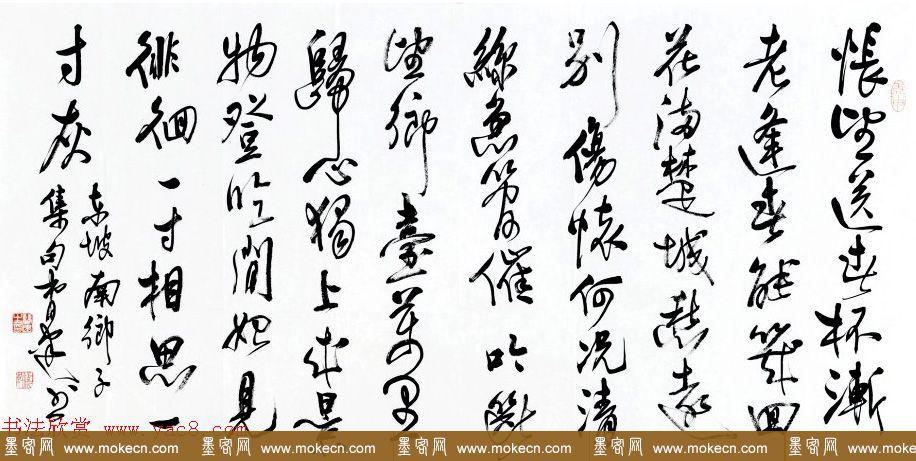 悵望送春杯漸
老逢春能幾回
花滿楚城愁遠
別傷懷何況清
絲急管催吟斷
望鄉臺萬里
歸心獨上來景
物登臨間始見
徘徊一寸相思一
寸灰
东坡南鄉子
集句
书法欣赏 www.yac8.com
墨客网 www.mokecn.com 墨客网 www.mokecn.com 墨客网 www.mokecn.com 墨客网 www.mokecn.com